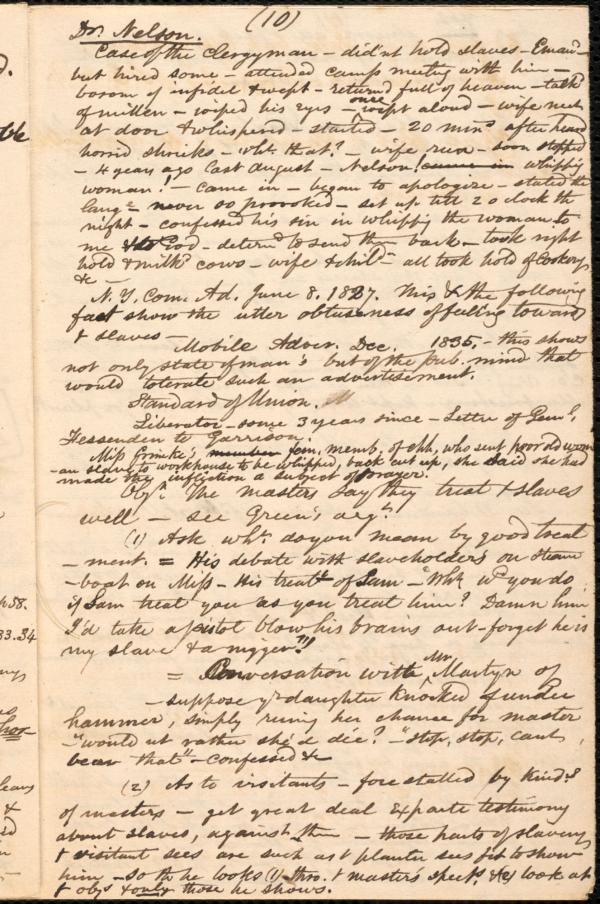 (10)
Dr. Nelson.
Case of the Clergyman – did'nt hold slaves – Eman–
but hired some – attended camp meeting with him –
borom of infidel & wept – returnd full of heaven – talkd
of millen – wiped his eyes – once wept aloud – wife met
at door & whisperd – started – 20 mins after heard
horrid shrieks – wht. that? – wife run – soon stopped
– 4 years ago last August – Nelson! came in whippig
woman! – came in – began to apologize – stated the
lang– never so provoked – set up till 2 oclock the
night – confessed his sin in whippg the woman to
me & to God – determd to send them back – took right
hold & milkd cows – wife & chil– all took hold of Cookery
&c –
N. Y. Com. Ad. June 8. 1827. This & the following
fact show the utter obtuseness of feeling toward
t slaves –
Mobile Adver. Dec. 1835, – this shows
not only state of man's but of the pub. mind that
would tolerate such an advertisement.
Standard of Union.
Liberator – some 3 years since – Letter of Genl.
Fessenden to Garrison.
Miss Grimke's, member fem. memb. of chh, who sent poor old wom
– an slave to workhouse to be whipped, back cut up, she said she had
made the infliction a subject of prayer.
Obj. The masters say they treat t slaves
well – see Green's argt.
(1) Ask wh. do you mean by good treat
– ment. = His debate with slaveholders on steam
– boat on Miss – His treatt of Sam – "Wht wd you do
if Sam treat you as you treat him? Damn him
I'd take a pistol blow his brains out – forget he is
my slave & a nigger"!!
= Conversation with Mr. Martyn of
– suppose yr daughter knocked of under
hammer, simply runing her chance for master
– "would nt rather she'd die? – "stop, stop, cant
bear that" – confessed &c
(2) As to visitants – forestalled by kinds.
of masters – get great deal Exparte testimony
about slaves, against them – those parts of slavery
t visitant sees are such as t planter sees fit to show
him – so th he looks (1) thro. t master's specks. & (2) look at
t objs & only those he shows.